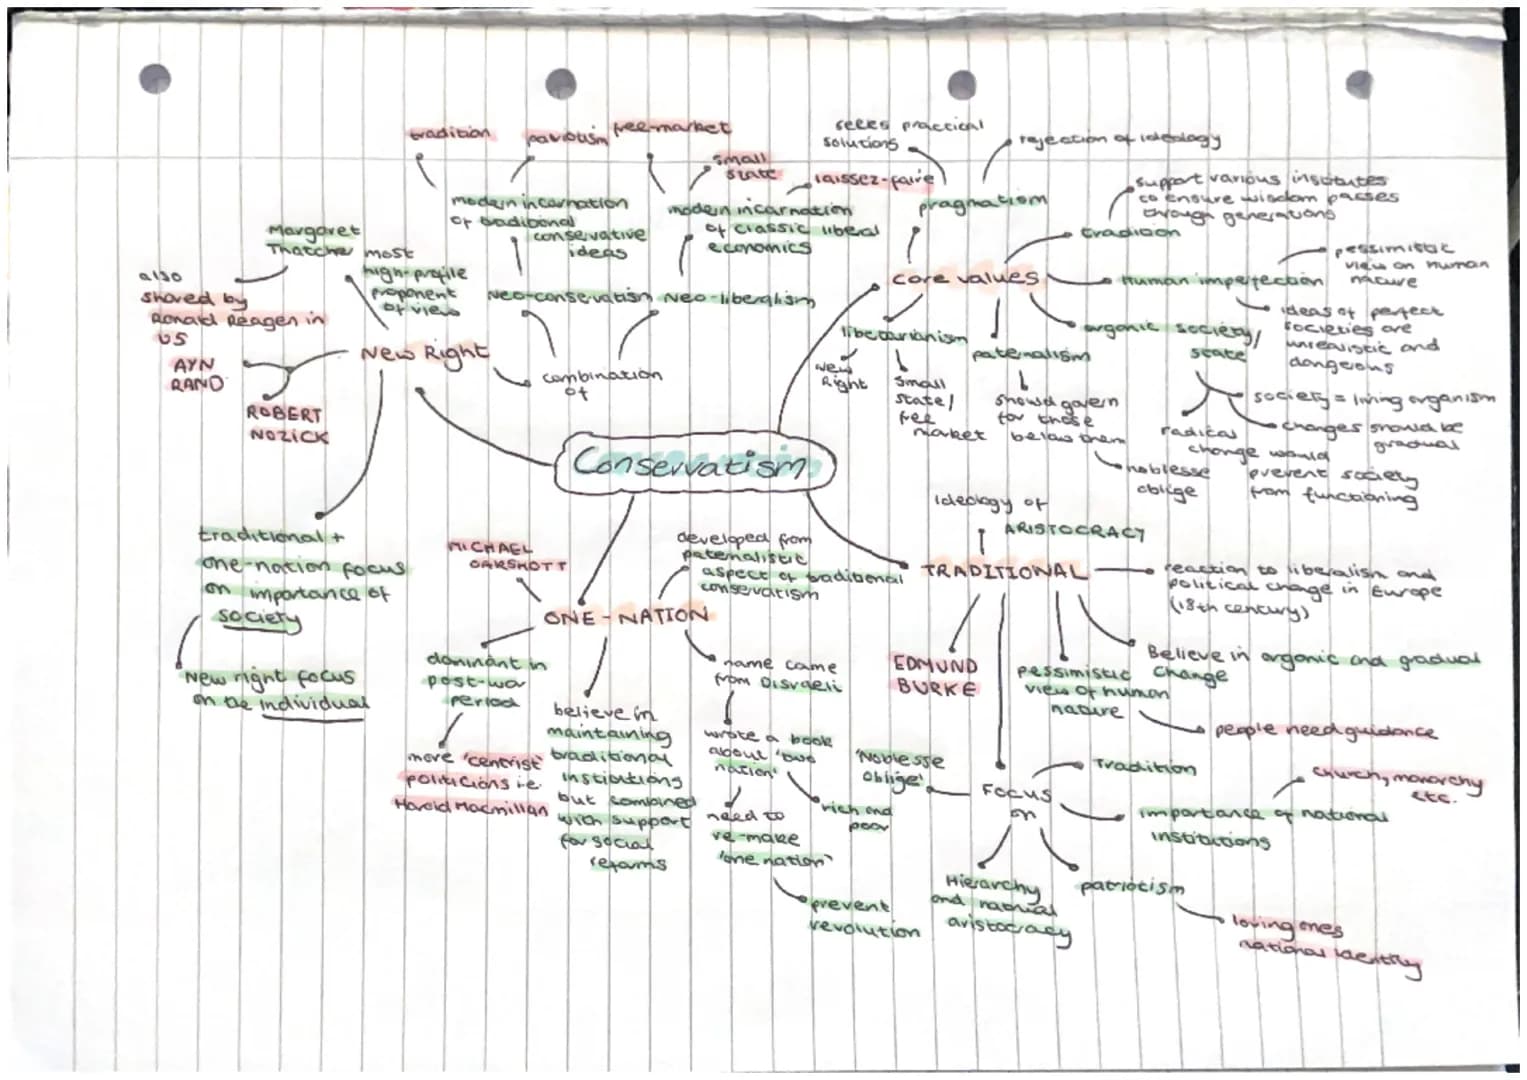 Conservatism
core values
pragmatism
seeks practical
solutions
rejection of ideology
tradition
support various institutes
to ensure wisdom passes
through generations
Human imperfection
pessimistic
view on human
nature
ideas of perfect
societies are
unrealistic and
dangerous
organic society/
state
society = living organism
changes should be
gradual
radical
change would
prevent society
from functioning
paternalism
should govern
for those
below them
noblesse
oblige
libertarianism
New
Right
small
state/
free
market
TRADITIONAL
ideology of
ARISTOCRACY
reaction to liberalism and
political change in Europe
(18th century)
Believe in organic and gradual
change
pessimistic
view of human
nature
people need guidance
EDMUND
BURKE
Focus
on
Tradition
importance of national
institutions
church, monarchy
etc.
patriotism
loving ones
national identity
Hierarchy
and natural
aristocracy
'Noblesse
oblige'
ONE-NATION
developed from
paternalistic
aspect of traditional
conservatism
name came
from Disraeli
wrote a book
about 'two
nation'
rich and
poor
need to
re-make
'one nation'
prevent
revolution
believe in
maintaining
traditional
institutions
but combined
with support
for social
reforms
dominant in
post-war
period
more 'centrist'
politicians i.e.
Harold Macmillan
MICHAEL
OAKSHOTT
New Right
combination
of
Neo-conservatism
modern incarnation
of traditional
conservative
ideas
tradition
patriotism
Neo-liberalism
modern incarnation
of classic liberal
economics
free-market
small
state
laissez-faire
most
high-profile
proponent
of view
Margaret
Thatcher
also
shared by
Ronald Reagen in
US
AYN
RAND
ROBERT
NOZICK
traditional +
one-nation focus
on importance of
society
New right focus
on the individual